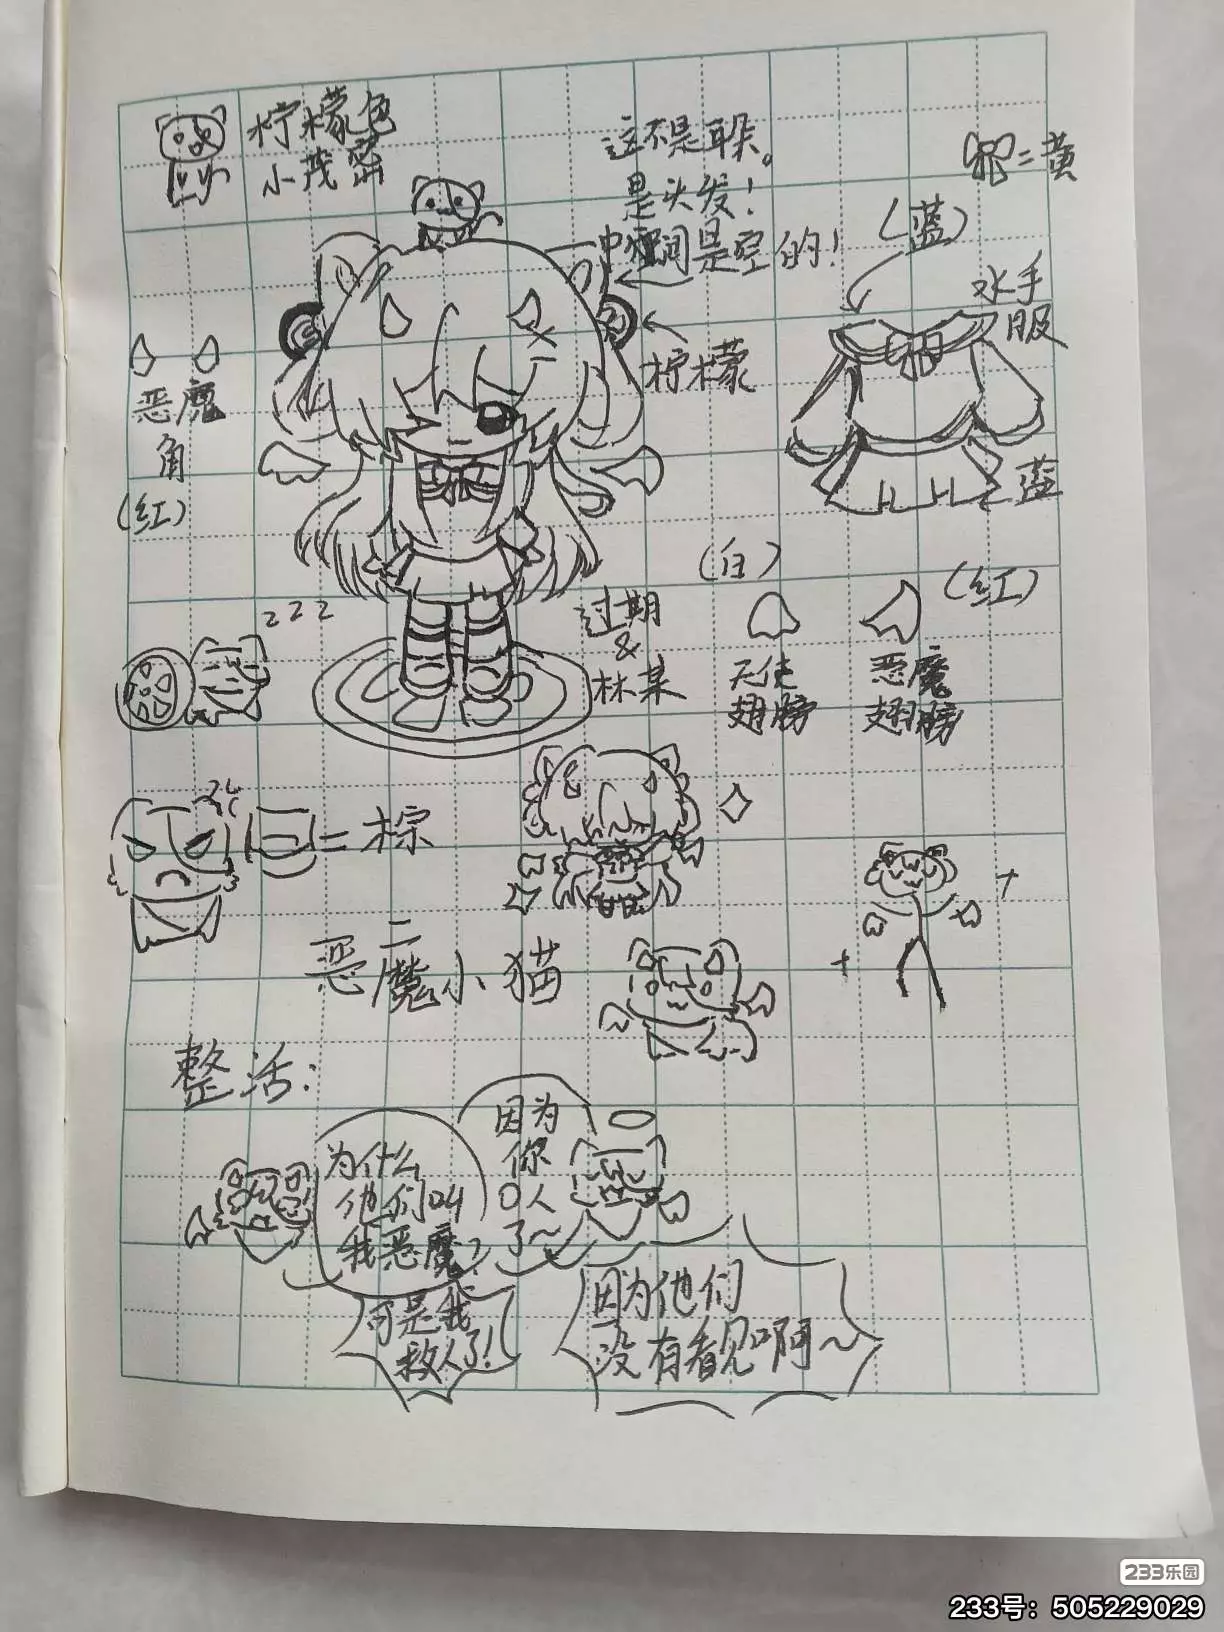 柠檬色
小茂密
这不是耳朵。
是头发！
中间是空的！
=黄
(蓝)
水手
服
柠檬
恶魔
角
(红)
蓝
(白)
(红)
zzz
过期
&
林某
天使
翅膀
恶魔
翅膀
=棕
恶魔小猫
整活：
为什么
他们叫
我恶魔？
因为
你
人
了～
可是我
救人了！
因为他们
没有看见啊～
233乐园
233号：505229029